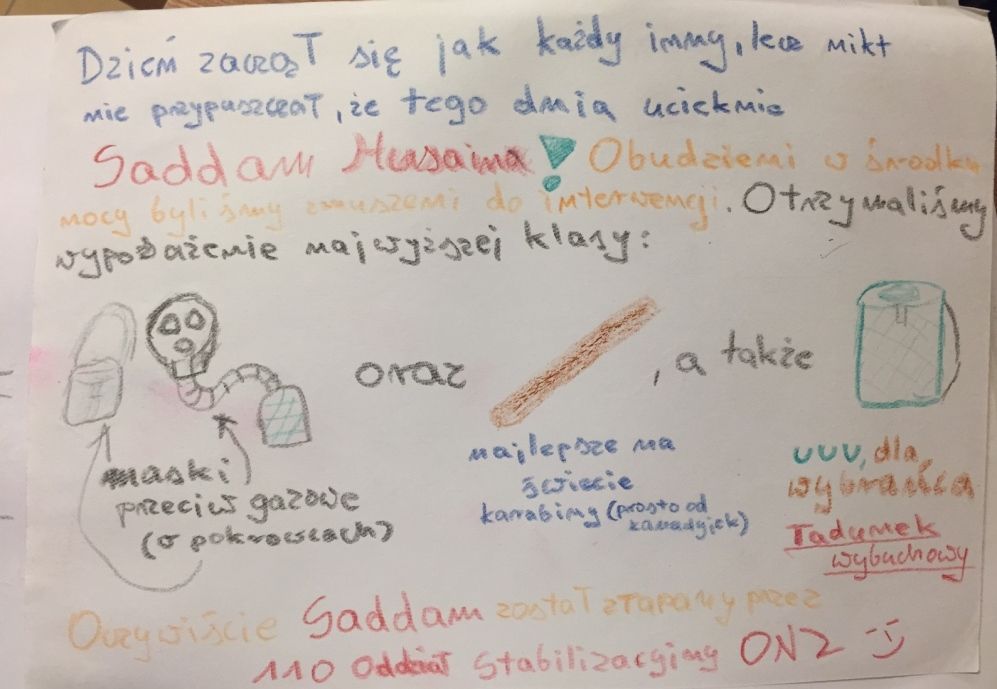 Dzień zaczął się jak każdy inny, lecz nikt
nie przypuszczał, że tego dnia ucieknie
Saddam Husaina! Obudzieni w środku
nocy byliśmy zmuszeni do interwencji. Otrzymaliśmy
wyposażenie najwyższej klasy:
oraz
, a także
maski
przeciw gazowe
(o pokrowcach)
najlepsze na
świecie
karabiny (prosto od
kanadyjek)
UUU, dla
wybrańca
Ładunek
wybuchowy
Oczywiście Saddam został złapany przez
110 Oddział Stabilizacyjny ONZ :)